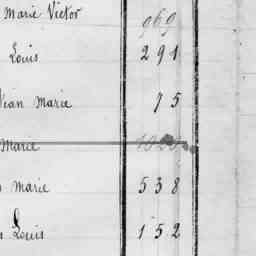 Marie Victor 969
Louis 291
Jean Marie 75
Marie
Marie 538
Louis 152